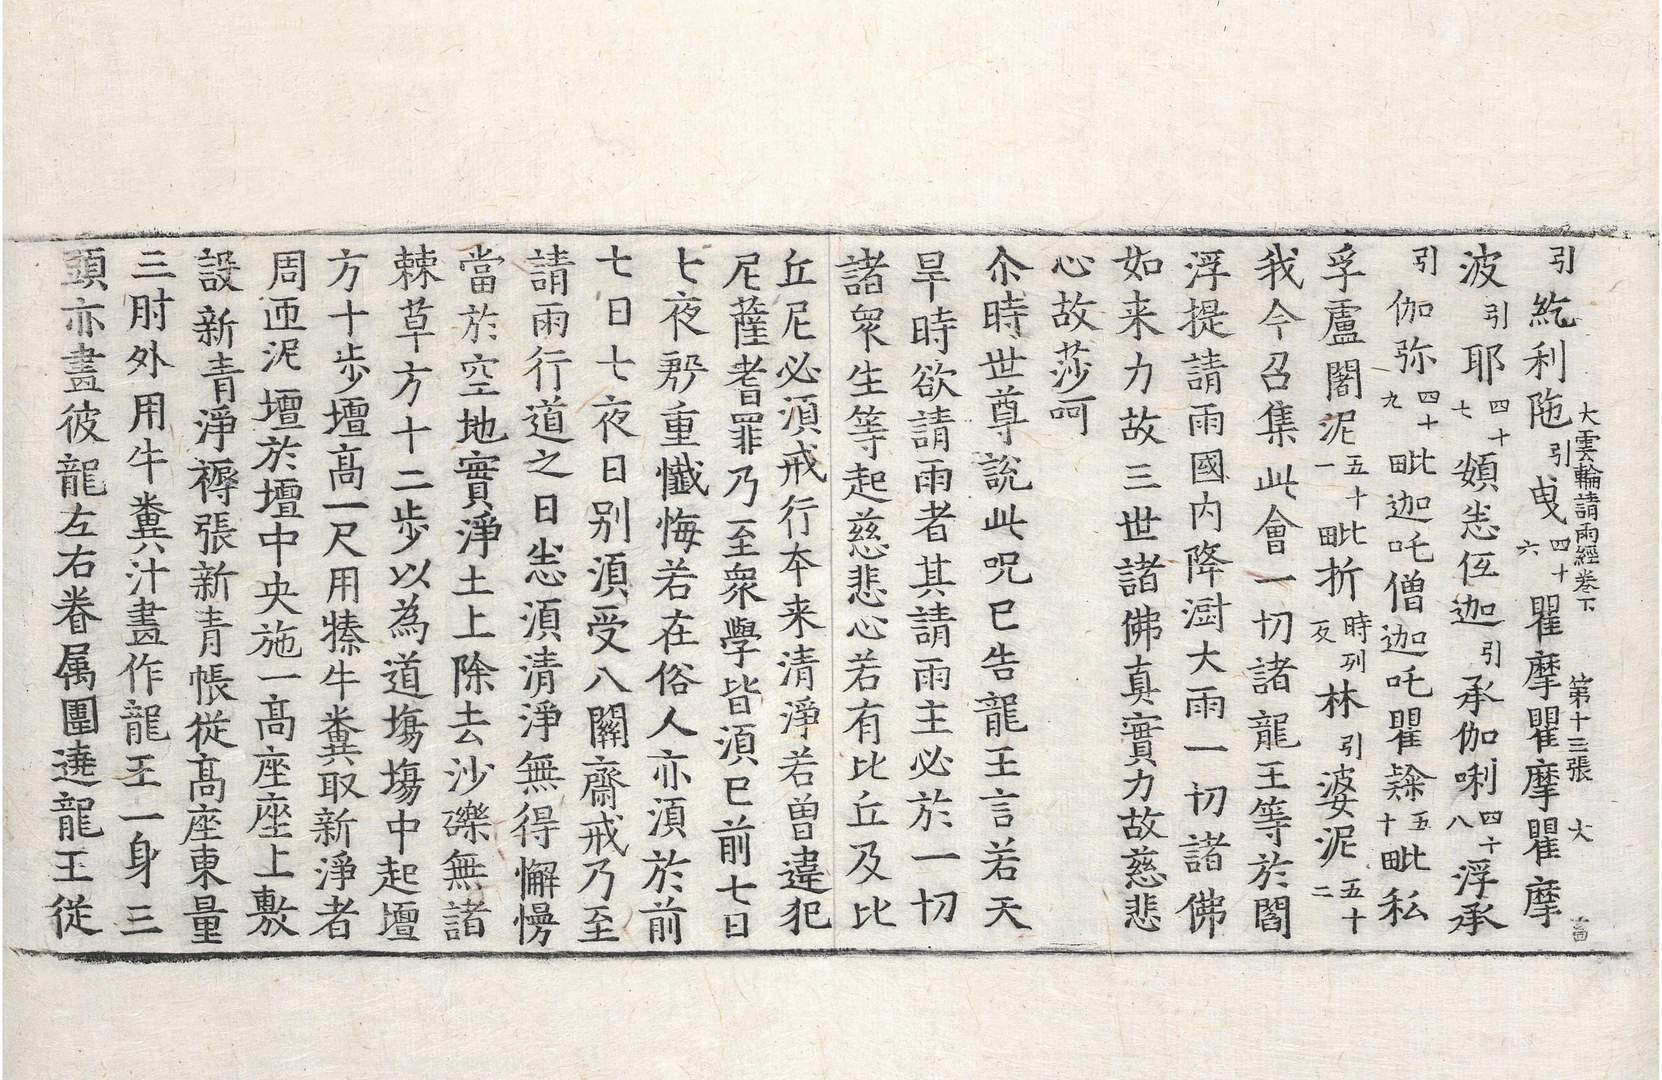 大雲輪請雨經卷下　第十三張　大
引紇利陁引曳四十六瞿摩瞿摩瞿摩
波引耶四十七頞恙伍迦引承伽唎四十八浮承
引伽弥四十九毗迦吒僧迦吒瞿𨽻五十毗私
孚盧闍泥五十一毗折時列反林引婆泥五十二
我今召集此會一切諸龍王等於閻
浮提請雨國內降澍大雨一切諸佛
如来力故三世諸佛真實力故慈悲
心故莎呵
尒時世尊說此呪已告龍王言若天
旱時欲請雨者其請雨主必於一切
諸衆生等起慈悲心若有比丘及比
丘尼必須戒行本来清淨若曽違犯
尼薩耆罪乃至衆學皆須已前七日
七夜慇重懺悔若在俗人亦須於前
七日七夜日别須受八關齋戒乃至
請雨行道之日恙須清淨無得懈慢
當於空地實淨土上除去沙礫無諸
棘草方十二步以為道塲塲中起壇
方十步壇髙一尺用㹅牛糞取新淨者
周迊泥壇於壇中央施一髙座座上敷
設新青淨褥張新青帳從髙座東量
三肘外用牛糞汁畫作龍王一身三
頭亦畫彼龍左右眷属圍遶龍王從